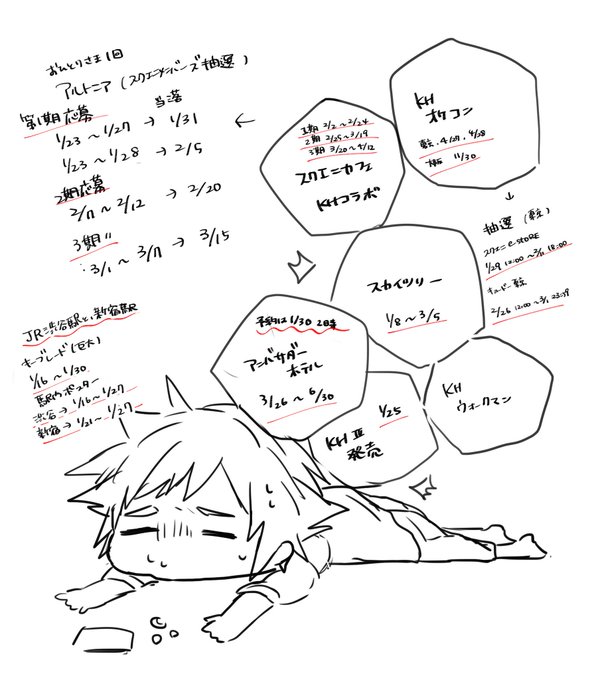 おひとりさま1回
アルトニア(スクエニメンバーズ抽選)
当落
第1期応募
1/23〜1/27→1/31
1/23〜1/28→2/5
2期応募
2/7〜2/12→2/20
3期〃
3/1〜3/7→3/15
←
KH
オケコン
東京、4/27、4/28
大阪 11/30
↓
抽選(東京)
スクエニe-STORE
1/29 12:00〜3/1 18:00
キョードー東京
2/26 12:00〜3/1 23:59
1期 2/2〜2/24
2期 2/25〜3/19
3期 3/20〜4/12
スクエニカフェ
KHコラボ
スカイツリー
1/8〜3/5
予約は1/30 20時
アニバサダー
ホテル
3/26〜6/30
KH
ウォークマン
1/25
KHⅢ
発売
JR渋谷駅と、新宿駅
キーブレード(巨大)
1/16〜1/30
駅内ポスター
渋谷→1/16〜1/27
新宿→1/21〜1/27